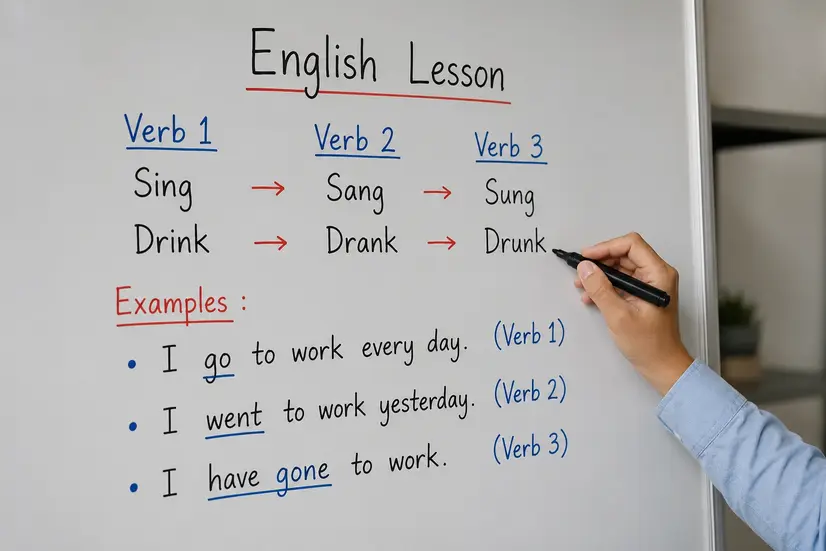 English Lesson
Verb 1 Verb 2 Verb 3
Sing → Sang → Sung
Drink → Drank → Drunk
Examples :
• I go to work every day. (Verb 1)
• I went to work yesterday. (Verb 2)
• I have gone to work. (Verb 3)